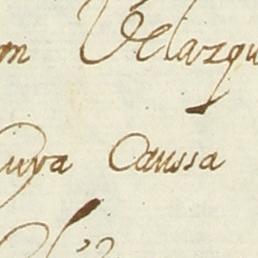 m Velazqu
uya Caussa